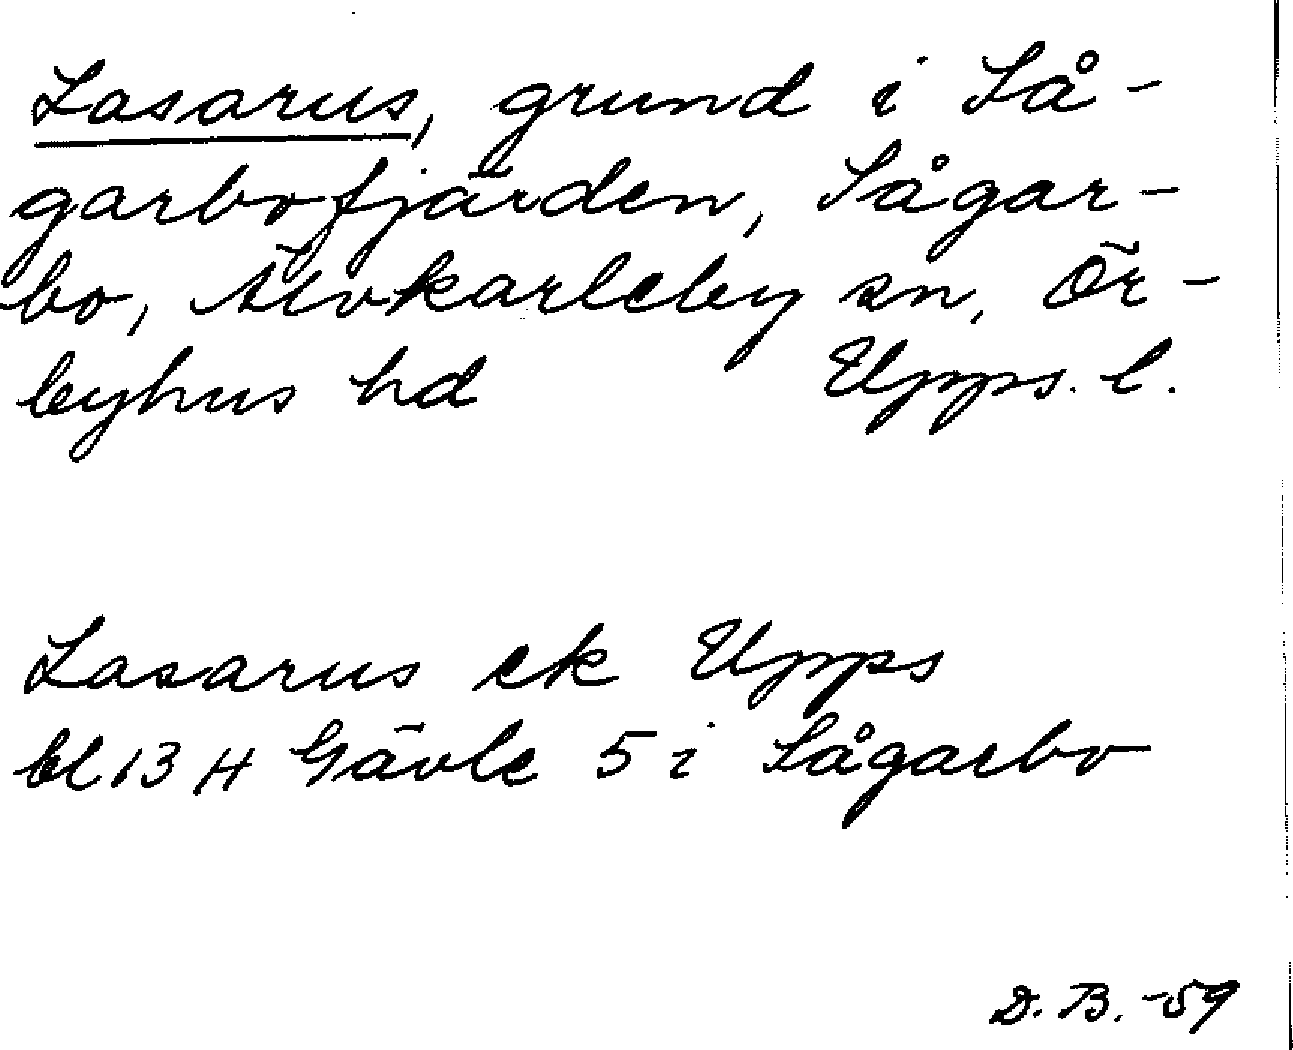 Lasarus, grund i Så-
garbofjärden, Sågar-
bo, Älvkarleby sn, Ör-
byhus hd Upps. l.
Lasarus ek Upps
bl 13 H Gävle 5 i Sågarbo
D. B. -59